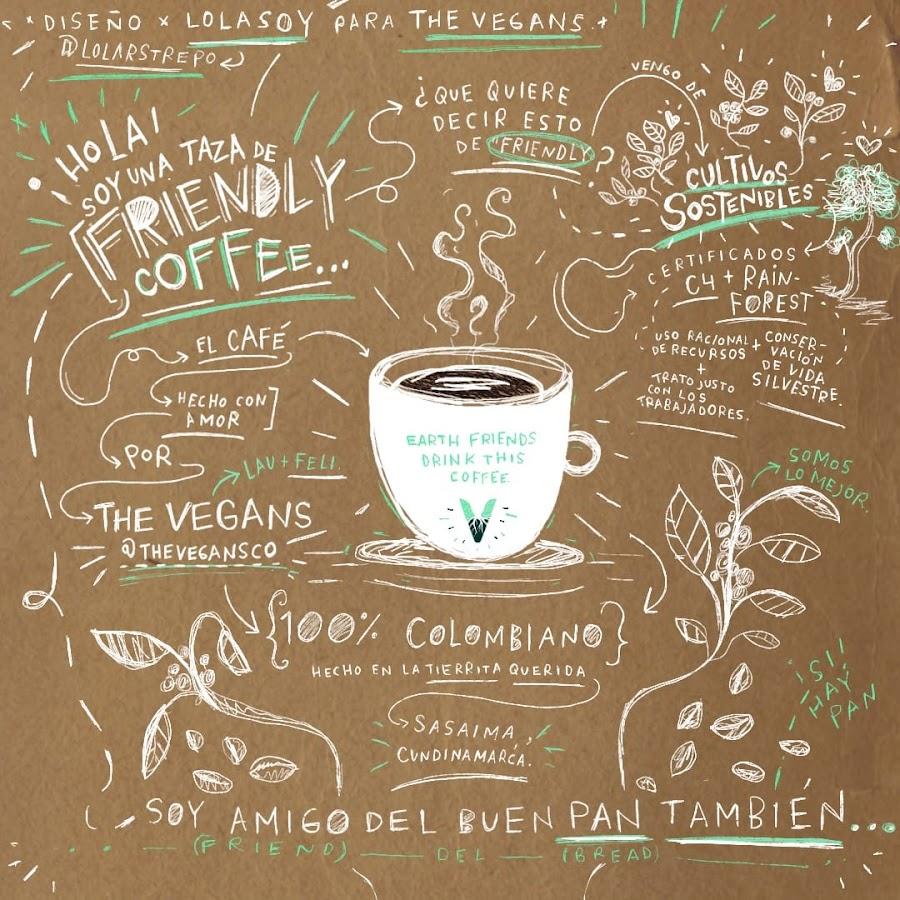 DISEÑO x LOLASOY PARA THE VEGANS.
@LOLARSTREPO
HOLA!
SOY UNA TAZA DE
FRIENDLY
COFFEE...
¿QUE QUIERE
DECIR ESTO
DE "FRIENDLY"?
VENGO DE
CULTIVOS
SOSTENIBLES
CERTIFICADOS
C4 + RAIN-
FOREST
USO RACIONAL
DE RECURSOS
+
CONSER-
VACIÓN
DE VIDA
SILVESTRE.
+
TRATO JUSTO
CON LOS
TRABAJADORES.
EL CAFÉ
HECHO CON
AMOR
POR
LAU + FELI.
THE VEGANS
@THEVEGANSCO
EARTH FRIENDS
DRINK THIS
COFFEE.
V
SOMOS
LO MEJOR.
{100% COLOMBIANO}
HECHO EN LA TIERRITA QUERIDA
SASAIMA,
CUNDINAMARCA.
¡SI!
HAY
PAN
SOY AMIGO DEL BUEN PAN TAMBIÉN...
(FRIEND) — DEL — (BREAD)